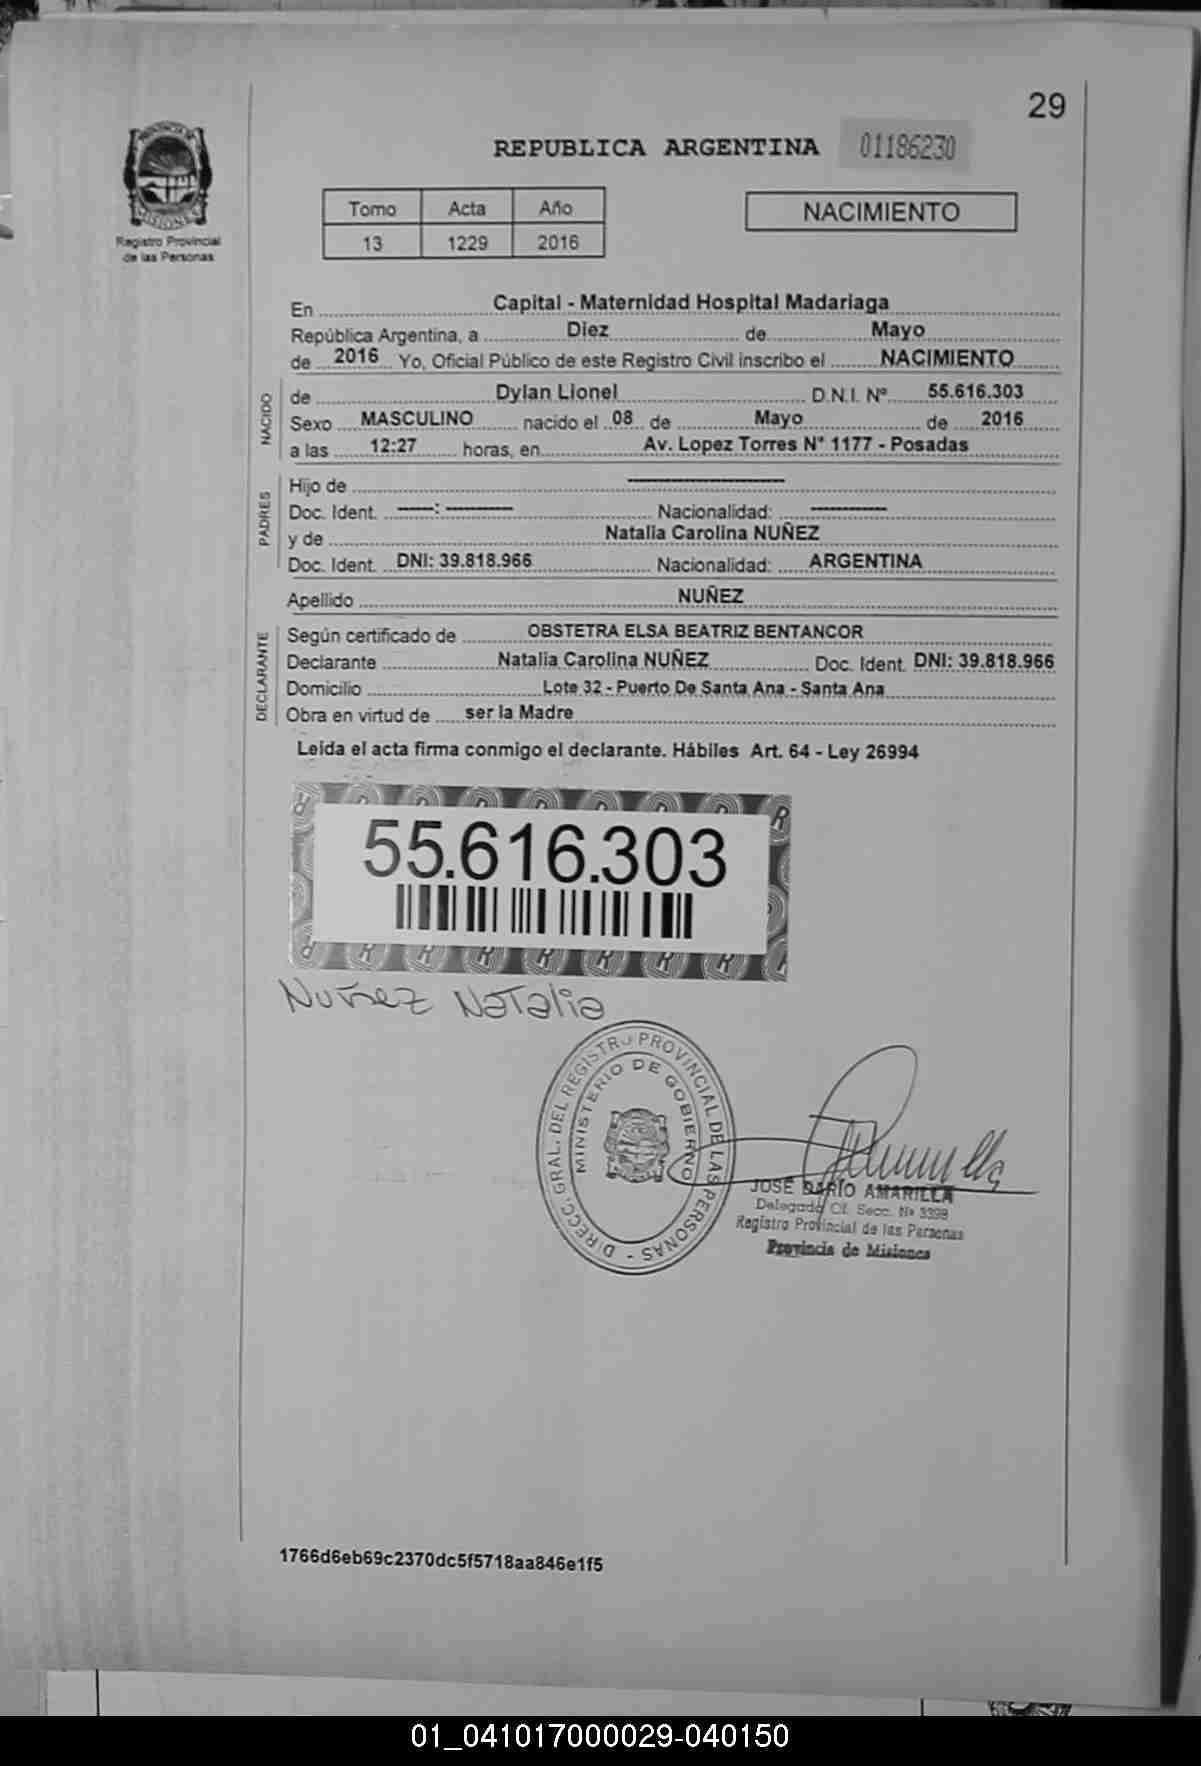 29
REPUBLICA ARGENTINA 01186230
PROVINCIA DE
MISIONES
Registro Provincial
de las Personas
Tomo Acta Año
13 1229 2016
NACIMIENTO
En Capital - Maternidad Hospital Madariaga
República Argentina, a Diez de Mayo
de 2016 Yo, Oficial Público de este Registro Civil inscribo el NACIMIENTO
NACIDO
de Dylan Lionel D.N.I. Nº 55.616.303
Sexo MASCULINO nacido el 08 de Mayo de 2016
a las 12:27 horas, en Av. Lopez Torres N° 1177 - Posadas
PADRES
Hijo de ----------------
Doc. Ident. ----: -------- Nacionalidad: ---------
y de Natalia Carolina NUÑEZ
Doc. Ident. DNI: 39.818.966 Nacionalidad: ARGENTINA
Apellido NUÑEZ
DECLARANTE
Según certificado de OBSTETRA ELSA BEATRIZ BENTANCOR
Declarante Natalia Carolina NUÑEZ Doc. Ident. DNI: 39.818.966
Domicilio Lote 32 - Puerto De Santa Ana - Santa Ana
Obra en virtud de ser la Madre
Leida el acta firma conmigo el declarante. Hábiles Art. 64 - Ley 26994
55.616.303
Nuñez Natalia
DIRECC. GRAL. DEL REGISTRO PROVINCIAL DE LAS PERSONAS -
MINISTERIO DE GOBIERNO
JOSE DARIO AMARILLA
Delegado Cl. Secc. Nº 3398
Registro Provincial de las Personas
Provincia de Misiones
1766d6eb69c2370dc5f5718aa846e1f5
01_041017000029-040150